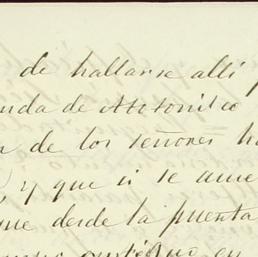 de hallarse alli
nda de Atotonilco
de los señores
, y que si se
que desde la puerta
en